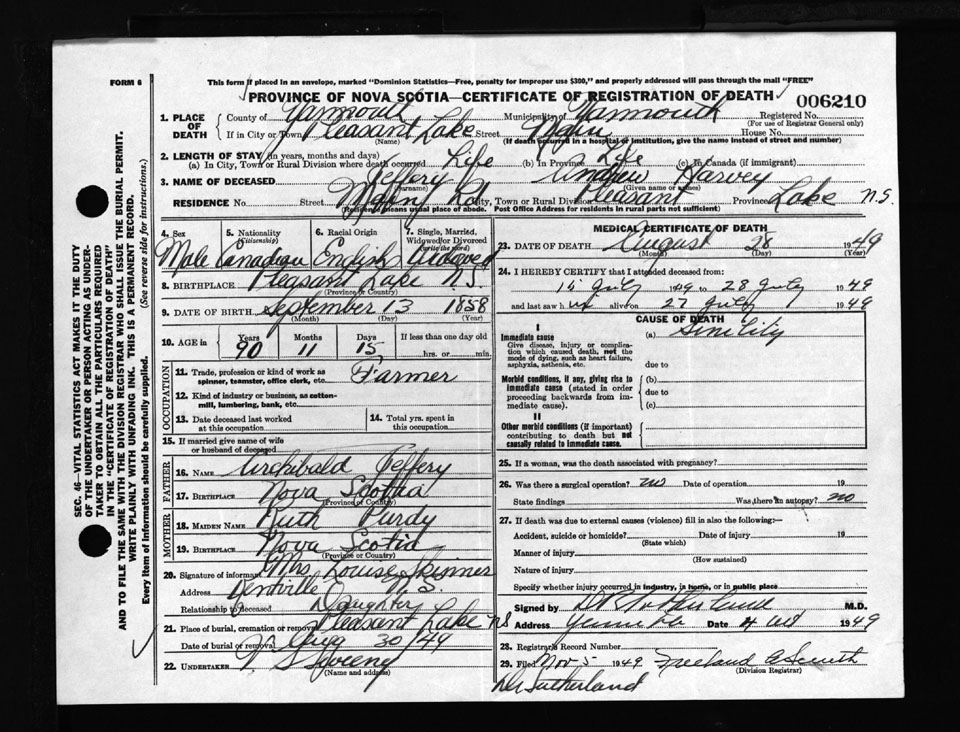 FORM 6
This form if placed in an envelope, marked "Dominion Statistics—Free, penalty for improper use $300," and properly addressed will pass through the mail "FREE"
PROVINCE OF NOVA SCOTIA—CERTIFICATE OF REGISTRATION OF DEATH
006210
1. PLACE OF DEATH
County of Yarmouth Municipality of Yarmouth Registered No.
(For use of Registrar General only)
If in City or Town Pleasant Lake Street Main House No.
(Name) (If death occurred in a hospital or institution, give the name instead of street and number)
2. LENGTH OF STAY (in years, months and days)
(a) In City, Town or Rural Division where death occurred Life (b) In Province Life (c) In Canada (if immigrant)
3. NAME OF DECEASED Jeffery Andrew Harvey
(Surname) (Given name or names)
RESIDENCE No. Street City, Town or Rural Division Pleasant Province Lake N.S.
(Residence means usual place of abode. Post Office Address for residents in rural parts not sufficient)
4. Sex Male
5. Nationality (Citizenship) Canadian
6. Racial Origin English
7. Single, Married, Widowed or Divorced (write the word) Widowed
8. BIRTHPLACE Pleasant Lake N.S.
(Province or Country)
9. DATE OF BIRTH September 13 1858
(Month) (Day) (Year)
10. AGE in Years 90 Months 11 Days 15 If less than one day old hrs. or min.
OCCUPATION
11. Trade, profession or kind of work as spinner, teamster, office clerk, etc. Farmer
12. Kind of industry or business, as cotton-mill, lumbering, bank, etc.
13. Date deceased last worked at this occupation
14. Total yrs. spent in this occupation
15. If married give name of wife or husband of deceased
FATHER
16. NAME Archibald Jeffery
17. BIRTHPLACE Nova Scotia
(Province or Country)
MOTHER
18. MAIDEN NAME Ruth Purdy
19. BIRTHPLACE Nova Scotia
(Province or Country)
20. Signature of informant Mrs. Louise Skinner
Address Kentville N.S.
Relationship to deceased Daughter
21. Place of burial, cremation or removal Pleasant Lake NS
Date of burial or removal Aug 30/49
22. UNDERTAKER V S Sweeny
(Name and address)
MEDICAL CERTIFICATE OF DEATH
23. DATE OF DEATH August 28 1949
(Month) (Day)
24. I HEREBY CERTIFY that I attended deceased from:
15 July 1949 to 28 July 1949
and last saw h alive on 27 July 1949
CAUSE OF DEATH
I
Immediate cause (a) Sinility
Give disease, injury or complication which caused death, not the mode of dying, such as heart failure, asphyxia, asthenia, etc.
due to
Morbid conditions, if any, giving rise to immediate cause (stated in order proceeding backwards from immediate cause).
(b)
due to
(c)
II
Other morbid conditions (if important) contributing to death but not causally related to immediate cause.
25. If a woman, was the death associated with pregnancy?
26. Was there a surgical operation? no Date of operation 19
State findings Was there an autopsy? no
27. If death was due to external causes (violence) fill in also the following:—
Accident, suicide or homicide? Date of injury 19
(State which)
Manner of injury
(How sustained)
Nature of injury
Specify whether injury occurred in industry, in home, or in public place
Signed by M.D.
Address Date 4 Oct 1949
28. Registrar's Record Number
29. Filed Nov 5 1949 Freeland E Smith
(Division Registrar)
Sutherland
SEC. 46—VITAL STATISTICS ACT MAKES IT THE DUTY OF THE UNDERTAKER OR PERSON ACTING AS UNDERTAKER TO OBTAIN ALL THE PARTICULARS REQUIRED IN THE "CERTIFICATE OF REGISTRATION OF DEATH"
AND TO FILE THE SAME WITH THE DIVISION REGISTRAR WHO SHALL ISSUE THE BURIAL PERMIT.
WRITE PLAINLY WITH UNFADING INK. THIS IS A PERMANENT RECORD.
Every item of Information should be carefully supplied. (See reverse side for instructions.)